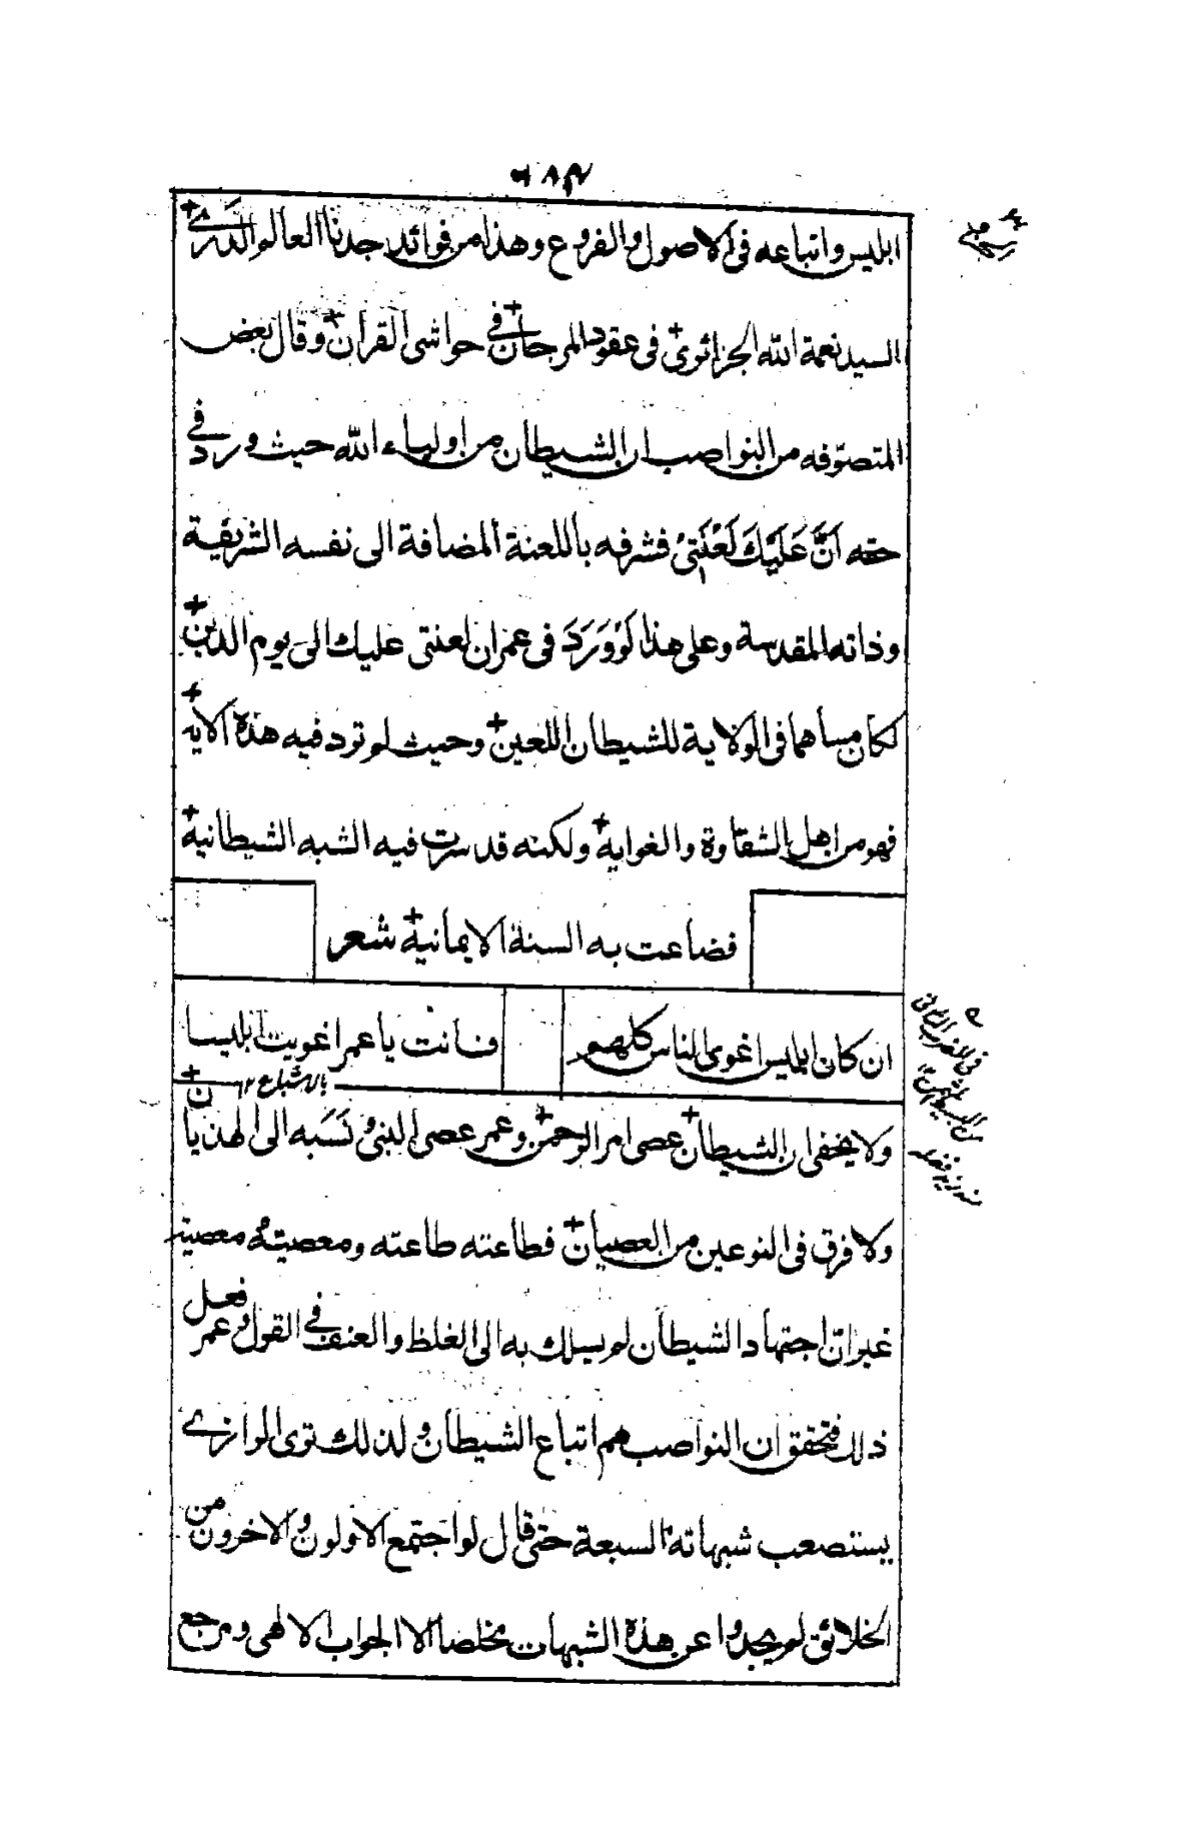 ابليس واتباعه فى الاصول والفروع وهذا من فوائد جدنا العالم الدرى
السيد نعمة الله الجزائرى فى عقود المرجان فى حواشى القران وقال بعض
المتصوّفه من النواصب ان الشيطان من اولياء الله حيث ورد فى
حقه اَنَّ عَلَيْكَ لَعْنَتِىْ فشرفه باللعنة المضافة الى نفسه الشريفة
وذاته المقدسة وعلى هذا لَوْ وَرَدَ فى عمر ان لعنتى عليك الى يوم الدين
لكان مساهما فى الولاية للشيطان اللعين وحيث لم ترد فيه هذه الايه
فهو من اهل الشقاوة والغوايه ولكنه قد سرت فيه الشبه الشيطانية
فضاعت به السنة الايمانية شعر
ان كان ابليس اغوى الناس كلهم
فانت يا عمر اغويت ابليسا
بالاشباع ١٢
ولا يخفى ان الشيطان عصى امر الرحمن وعمر عصى النبى و نَسَبَه الى الهذيان
ولا فرق فى النوعين من العصيان فطاعته طاعته ومعصيته معصيته
غير انّ اجتهاد الشيطان لم يسلك به الى الغلظ والعنف فى القول وعمر فعل
ذلك فتحقق ان النواصب هم اتباع الشيطان ولذلك ترى الرازى
يستصعب شبهاته السبعة حتى قال لو اجتمع الاولون والاخرون من
الخلائق لم يجدوا عن هذه الشبهات مخلصا الا الجواب الالهى ومرجع